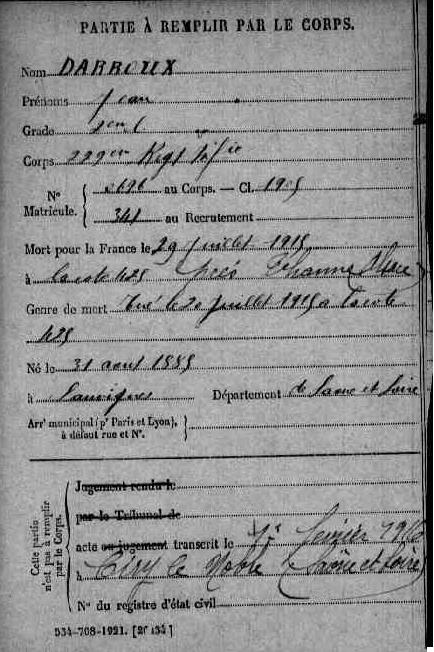 PARTIE À REMPLIR PAR LE CORPS.
Nom DARROUX
Prénoms Jean
Grade
Corps 222em Regt
N° Matricule. au Corps. — Cl. 1905
341 au Recrutement
Mort pour la France le 29 juillet 1915
à la cote 425 près Thann Alsace
Genre de mort tué le 20 juillet 1915 à la cote
425
Né le 31 août 1885
à Département de Saône et Loire
Arrt municipal (pr Paris et Lyon), à défaut rue et N°.
Cette partie n'est pas à remplir par le Corps.
Jugement rendu le
par le Tribunal de
acte ou jugement transcrit le 1er février 1916
à le Noble (Saône et Loire)
N° du registre d'état civil
534-708-1921. [26434]